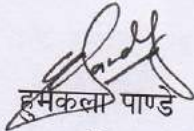 हुमकला पाण्डे